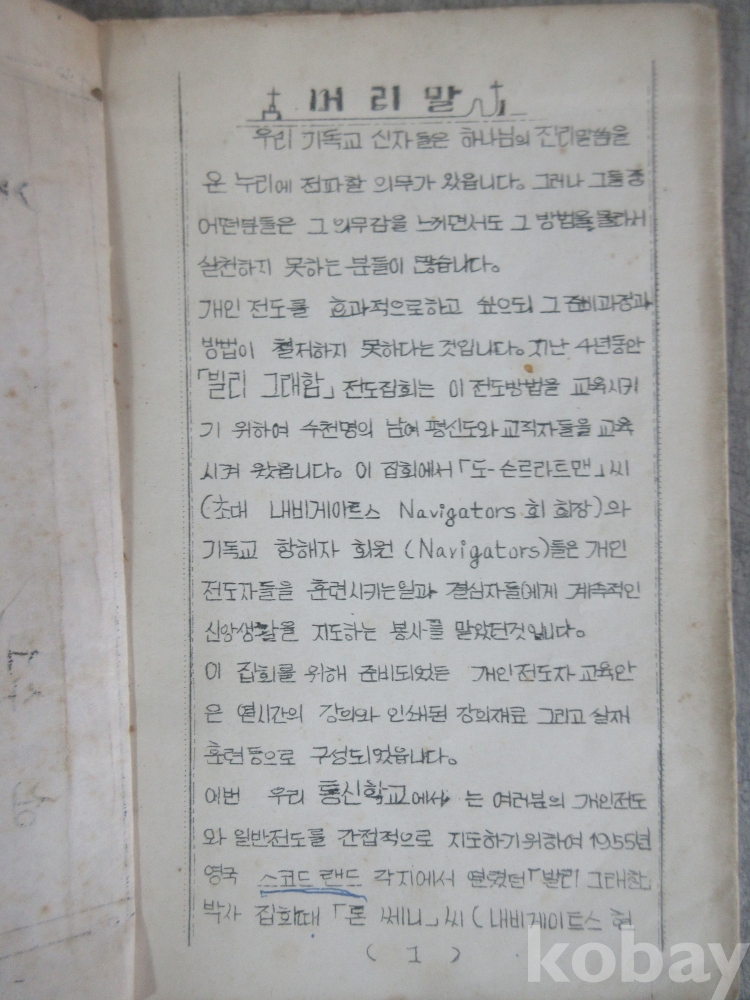 머리말
우리 기독교 신자들은 하나님의 진리말씀을
온 누리에 전파할 의무가 있읍니다. 그러나 그들중
어떤분들은 그 의무감을 느끼면서도 그 방법을 몰라서
실천하지 못하는 분들이 많습니다.
개인 전도를 효과적으로하고 싶으되 그 준비과정과
방법이 철저하지 못하다는 것입니다. 지난 4년동안
「빌리 그래함」 전도집회는 이 전도방법을 교육시키
기 위하여 수천명의 남여 평신도와 교직자들을 교육
시켜 왔읍니다. 이 집회에서「도-슨르라트맨」씨
(초대 내비게이트스 Navigators 회 회장)와
기독교 항해자 회원 (Navigators)들은 개인
전도자들을 훈련시키는일과 결심자들에게 계속적인
신앙생활을 지도하는 봉사를 맡았던것입니다.
이 집회를 위해 준비되었든 개인전도자 교육안
은 연시간의 강의와 인쇄된 강의재료 그리고 실재
훈련등으로 구성되었읍니다.
이번 우리 통신학교에서 는 여러분의 개인전도
와 일반전도를 간접적으로 지도하기위하여 1955년
영국 스코드랜드 각지에서 열렸던「빌리 그래함」
박사 집회때 「론 쎄니」씨 (내비게이트스 현
( 1 )
kobay